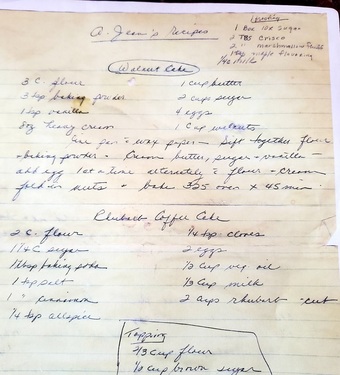 A. Jean's Recipes
Frosting
1 Box 10x sugar
2 TBS Crisco
2 " marshmallow fluff
maple flavoring
Walnut Cake
3 C flour
3 tsp baking powder
1 tsp vanilla
heavy cream
1 cup butter
2 cups sugar
4 eggs
1 Cup walnuts
pan - wax paper - Sift together flour
+ baking powder - Cream butter, sugar + vanilla -
add egg 1 at a time alternately & flour + cream
fold in nuts + bake 325 oven x 45 min.
Rhubarb Coffee Cake
2 C. flour
1 1/4 C sugar
baking soda
1 tsp salt
1 " cinnamon
1/4 tsp allspice
1/4 tsp. cloves
2 eggs
1/2 Cup veg oil
1/3 Cup milk
2 Cups rhubarb - cut
Topping
2/3 Cup flour
1/2 Cup brown sugar